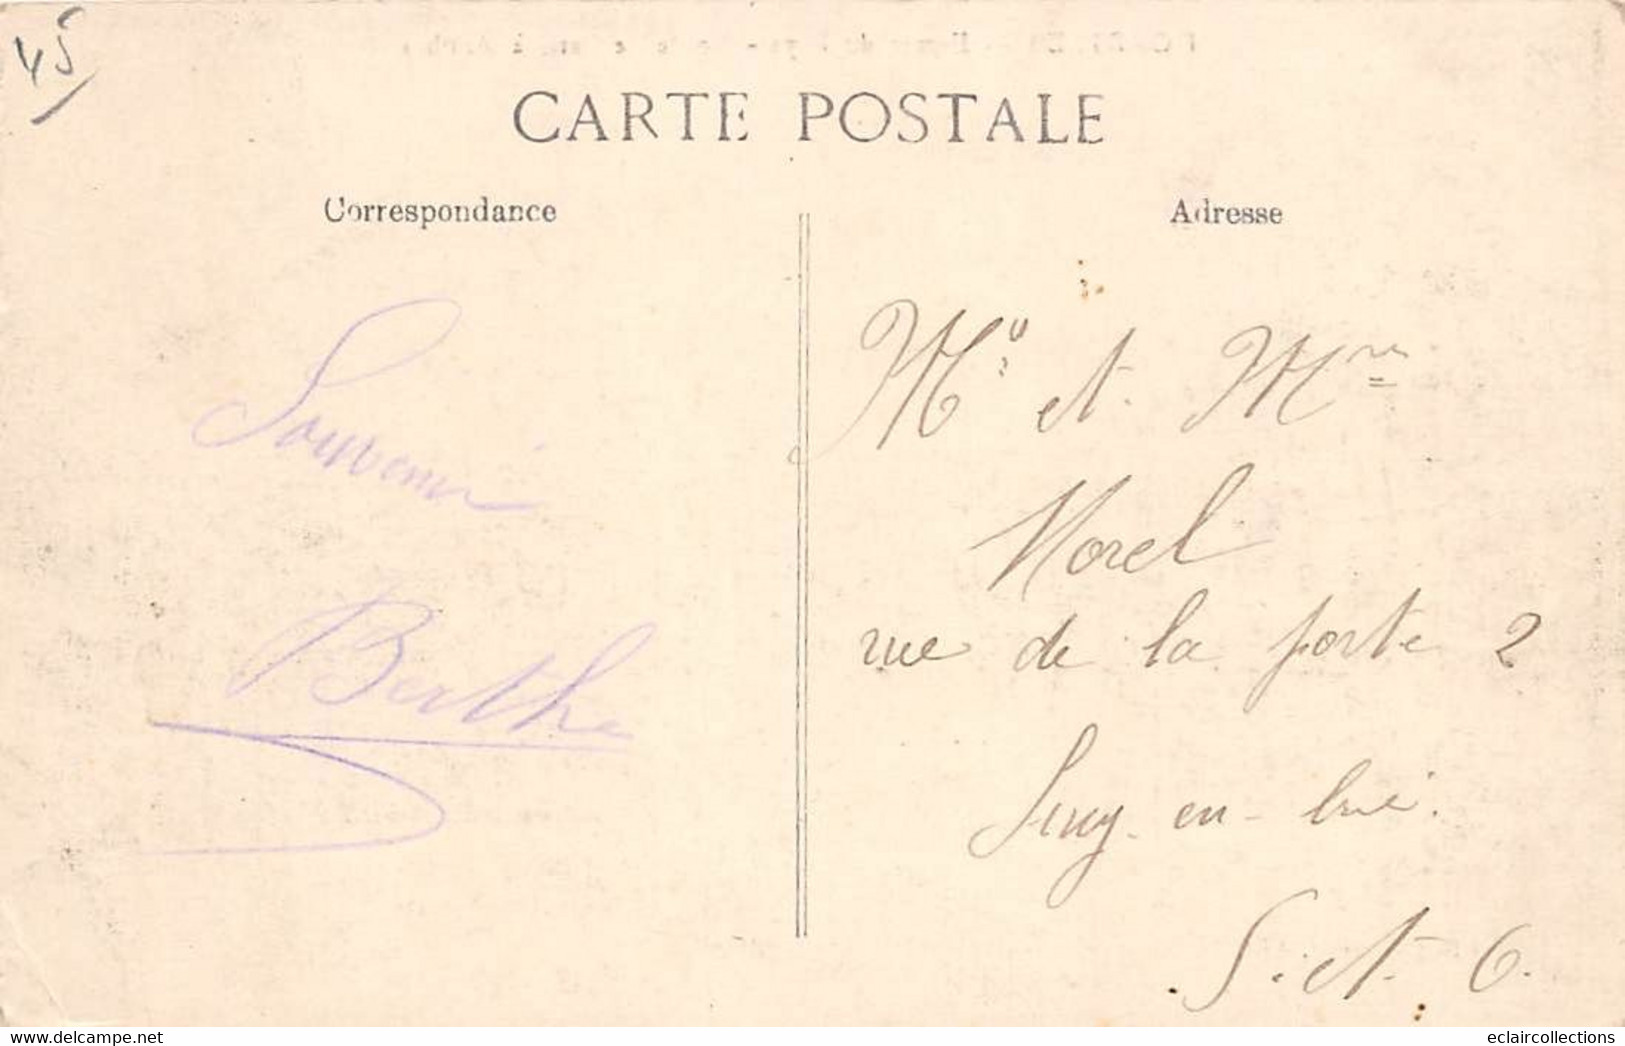 45
CARTE POSTALE
Correspondance
Adresse
Souvenir
Berthe
Mr et Mme
Morel
rue de la porte 2
Sucy-en-brie.
S. et O.
eclaircollections